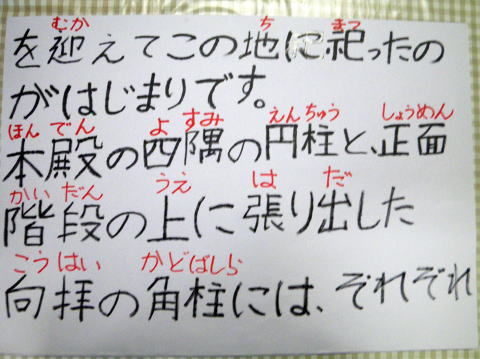 むか ち まつ
を迎えてこの地に祀ったの
がはじまりです。
ほんでん よ すみ えんちゅう しょうめん
本殿の四隅の円柱と、正面
かいだん うえ は だ
階段の上に張り出した
こうはい かどばしら
向拝の角柱には、それぞれ